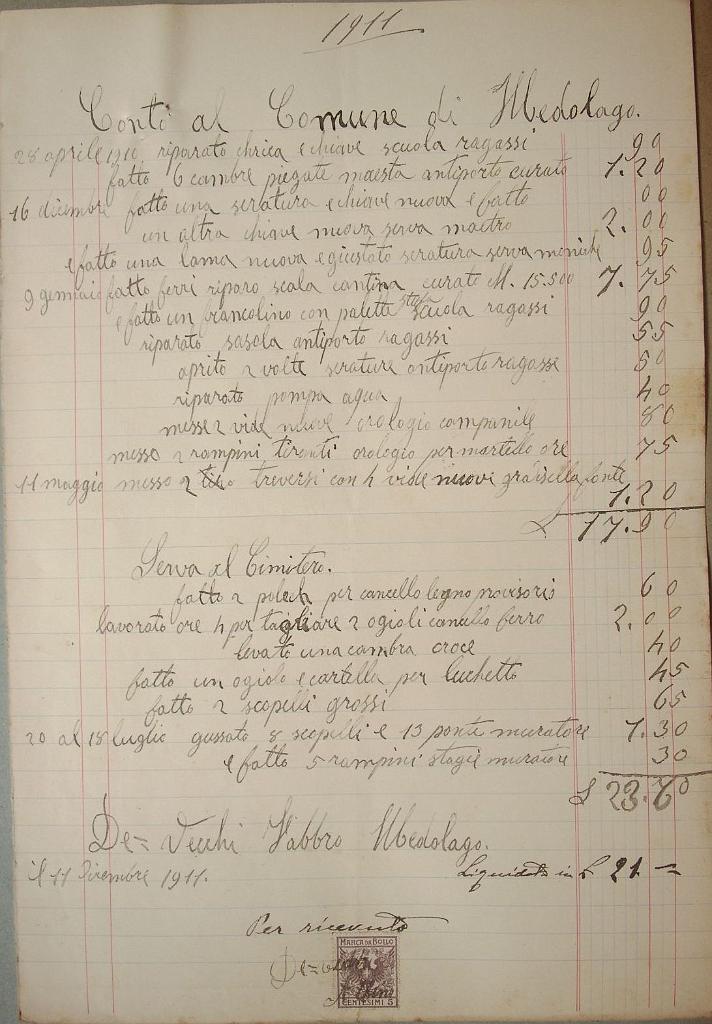 1911
Conti al Comune di Medolago.
28 aprile 1910 riparato chrica e chiave scuola ragassi 90
fatto 6 cambre piegate maesta antiporto curato 1.20
16 dicembre fatto una seratura e chiave nuova e fatto 00
un altra chiave nuova serva maetro 2.00
e fatto una lama nuova e giustato seratura serva moniche 95
9 gennaio fatto ferre riparo scala cantina curato M. 15.500 7.75
e fatto un brancolino con palette stufa scuola ragassi 90
riparato sasola antiporto ragassi 55
aprito 2 volte serature antiporto ragasse 50
riparato pompa aqua 40
messe 2 vide nuove orologio companile 80
messo 2 rampini tironti orologio per martello ore 75
11 maggio messo 2 treversi con 4 vide nuove fonte 1.20
£ 17.90
Serva al Cimitero.
fatto 2 per cancello legno provisorio 60
lavorato ore 4 per tagliare 2 ogioli cancello ferro 2.00
levato una cambra croce 40
fatto un ogiolo e cartella per luchetto 45
fatto 2 scopelli grossi 65
20 al 18 luglio gussato 8 scopelli e 13 ponte muratore 1.30
e fatto 5 rampini stagie muratore 30
£ 23.60
De= Vecchi Fabbro Medolago.
il 11 Dicembre 1911. Liquidata in £ 21 =
Per ricevuta
MARCA DA BOLLO
De=vechi
CENTESIMI 5